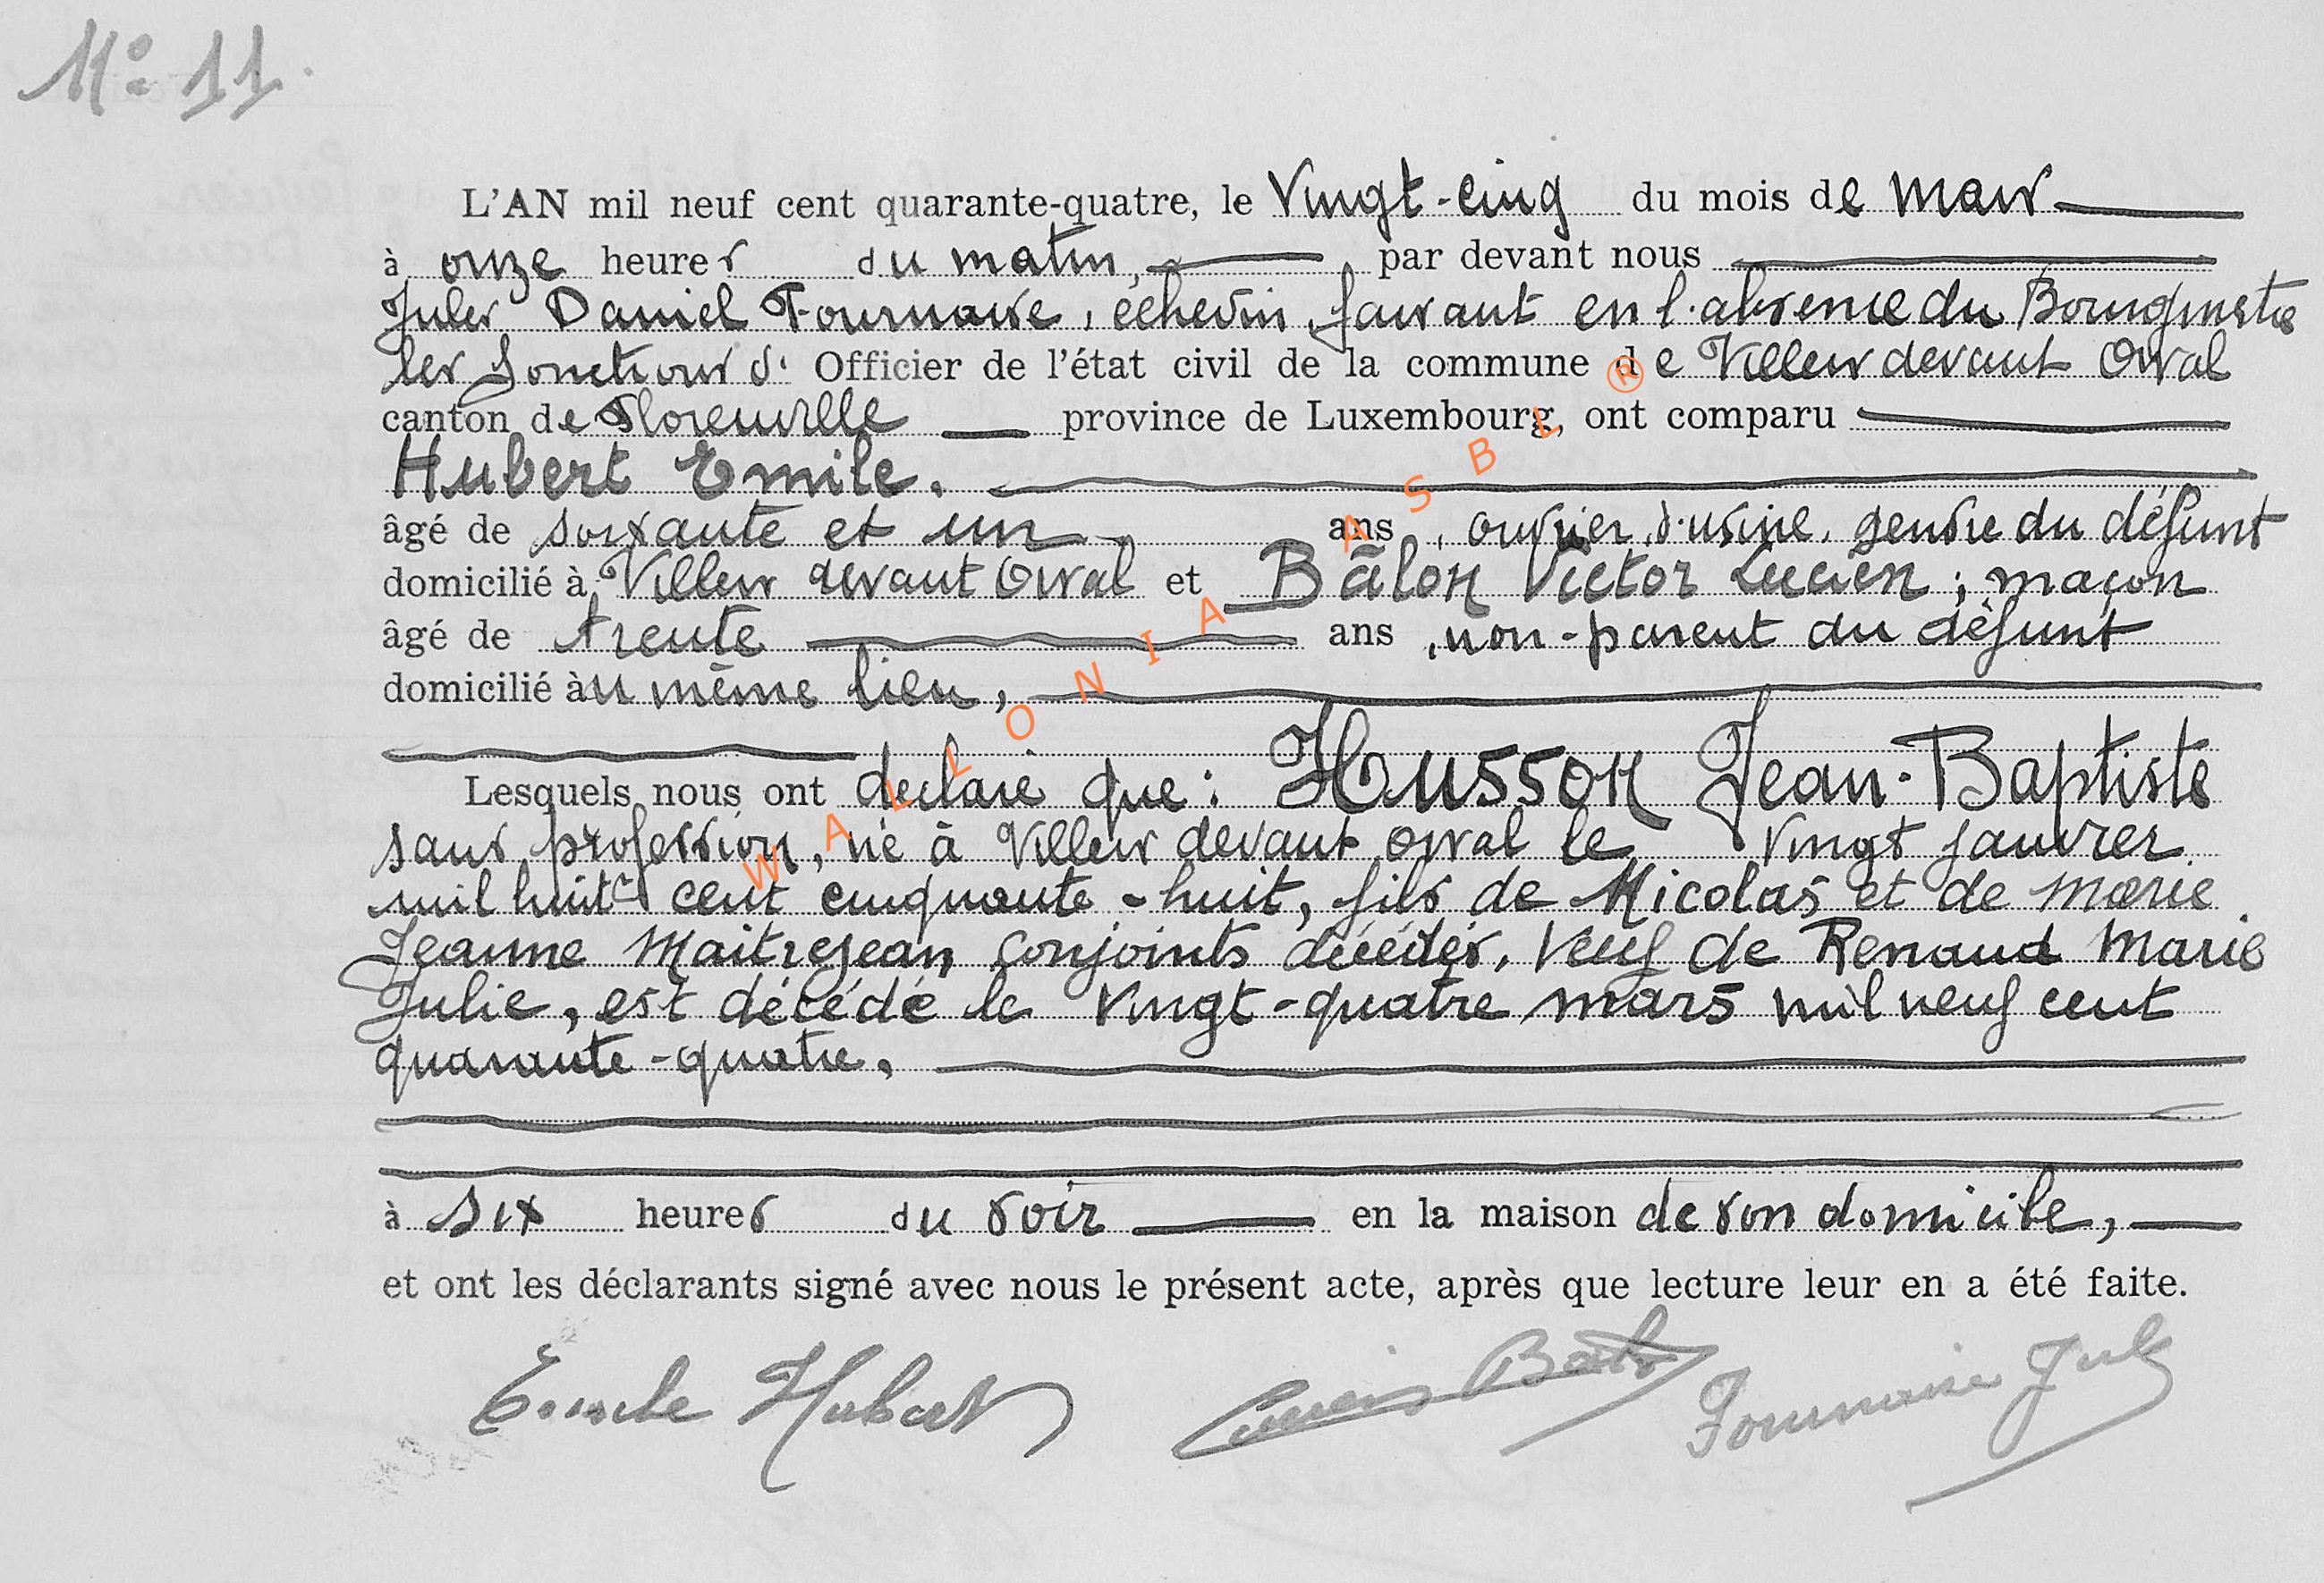 N° 11.
L'AN mil neuf cent quarante-quatre, le Vingt-cinq du mois de mars
à onze heures du matin, par devant nous
Jules Daniel Fournaise, échevin, faisant en l'absence du Bourgmestre
les fonctions d' Officier de l'état civil de la commune de Villers devant Orval
canton de Florenville province de Luxembourg, ont comparu
Hubert Emile.
âgé de soixante et un ans, ouvrier d'usine, gendre du défunt
domicilié à Villers devant Orval et Bâlon Victor Lucien; maçon
âgé de trente ans, non-parent du défunt
domicilié au même lieu,
Lesquels nous ont déclaré que: HUSSON Jean-Baptiste
sans profession, né à Villers devant Orval le Vingt janvier
mil huit cent cinquante-huit, fils de Nicolas et de Marie
Jeanne Maitrejean, conjoints décédés, Veuf de Renaud Marie
Julie, est décédé le Vingt-quatre mars mil neuf cent
quarante-quatre,
à six heures du soir en la maison de son domicile,
et ont les déclarants signé avec nous le présent acte, après que lecture leur en a été faite.
Emile Hubert Lucien Balon Fournaise Jules
WALLONIA ASBL ®